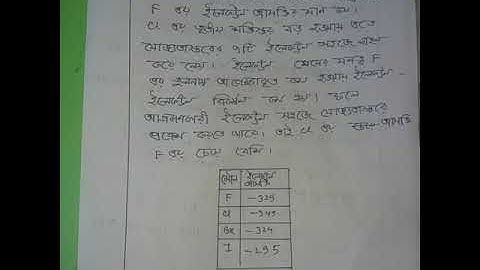 F এর ইলেকট্রন আসক্তির মান কম।
Cl এর তৃতীয় শক্তিস্তর বড় হওয়ায় এতে
যোজ্যতাস্তরের ৭টি ইলেকট্রন সহজে
করে নেয়। ইলেকট্রন মেঘের ঘনত্ব F
এর তুলনায় কম হওয়ায় ইলেকট্রন-
ইলেকট্রন বিকর্ষণ কম হয়। ফলে
আগমনকারী ইলেকট্রন সহজে যোজ্যতাস্তরে
প্রবেশ করতে পারে। তাই Cl এর আসক্তি
F এর চেয়ে বেশি।
মৌল ইলেকট্রন আসক্তি
F -325
Cl -349
Br -324
I -295